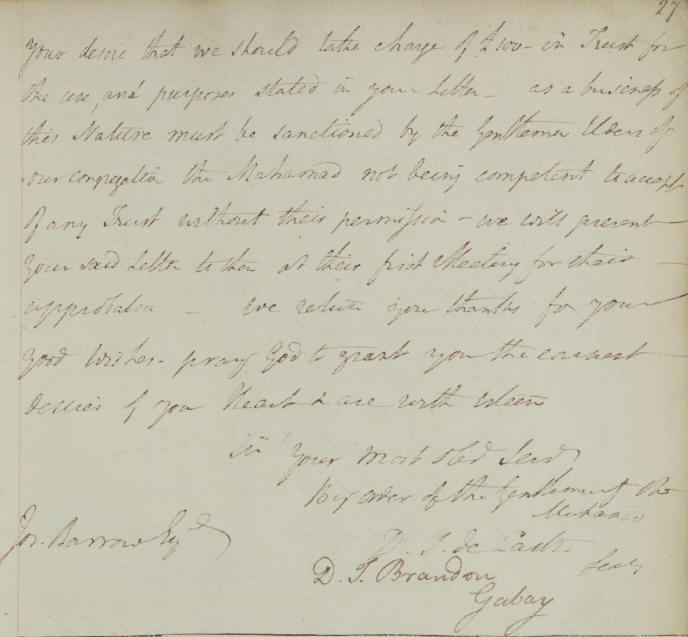 27
your desire that we should take charge of £100 - in Trust for
the use and purposes stated in your Letter - as a business of
this Nature must be sanctioned by the Gentlemen Elders of
our congregation the Mahamad not being competent to accept
of any Trust without their permission - we will present
your said Letter to them at their first Meeting for their
approbation - we return you thanks for your
good wishes - pray God to grant you the earnest
desires of your Heart & are with esteem
Sir Your most obed Serv
By order of the Gentlemen of the
Mahamad
Jos. Barrow Esqr
D. J. de Castro
Secy
D. J. Brandon
Gabay